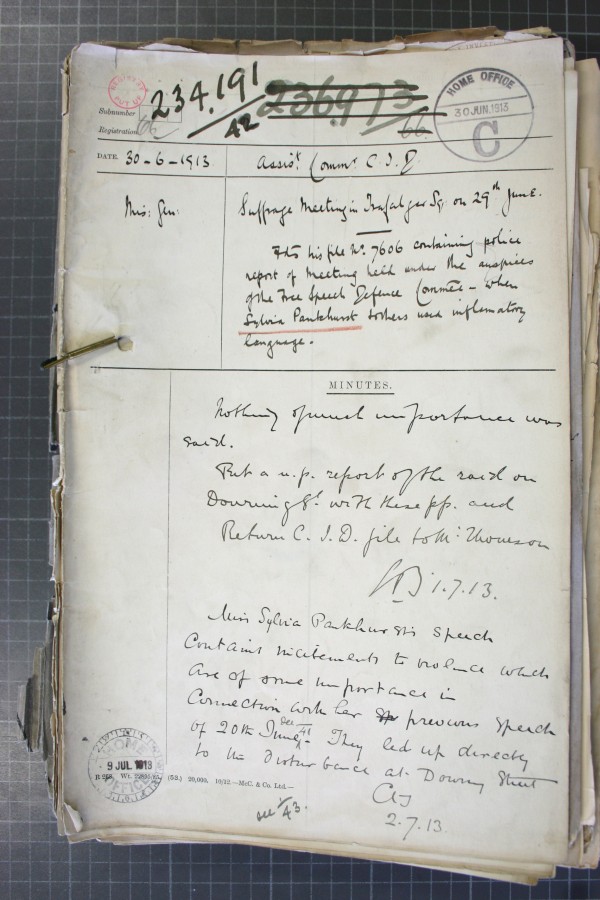 REGISTRY
234,191
42
236,973
66
HOME OFFICE
30 JUN.1913
C
Subnumber
Registration
DATE. 30-6-1913
Assist. Commr. C.I.D.
Mis: Gen:
Suffrage Meeting in Trafalgar Sq. on 29th June.
Fds his file No. 7606 containing police
report of meeting held under the auspices
of the Free Speech Defence Commtee - when
Sylvia Pankhurst & others used inflamatory
language.
MINUTES.
Nothing of much importance was
said.
Put a n.p. report of the raid on
Downing St. with these pp. and
Return C.I.D. file to Mr. Thomson
1.7.13.
Miss Sylvia Pankhursts speech
contains incitements to violence which
are of some importance in
connection with her previous speech
of 20th June see /41. They led up directly
to the disturbance at Downing Street
2.7.13.
HOME OFFICE
9 JUL 1913
(52.) 20,000. 10/12.—McC. & Co. Ltd.—
see /43.